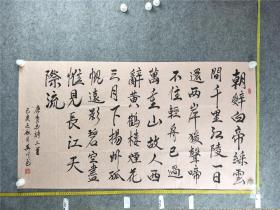 朝辭白帝綵雲
間千里江陵一日
還兩岸猿聲啼
不住輕舟已過
萬重山故人西
辭黃鶴樓煙花
三月下揚州孤
帆遠影碧空盡
惟見長江天
際流
唐李白詩二首
己亥之秋月